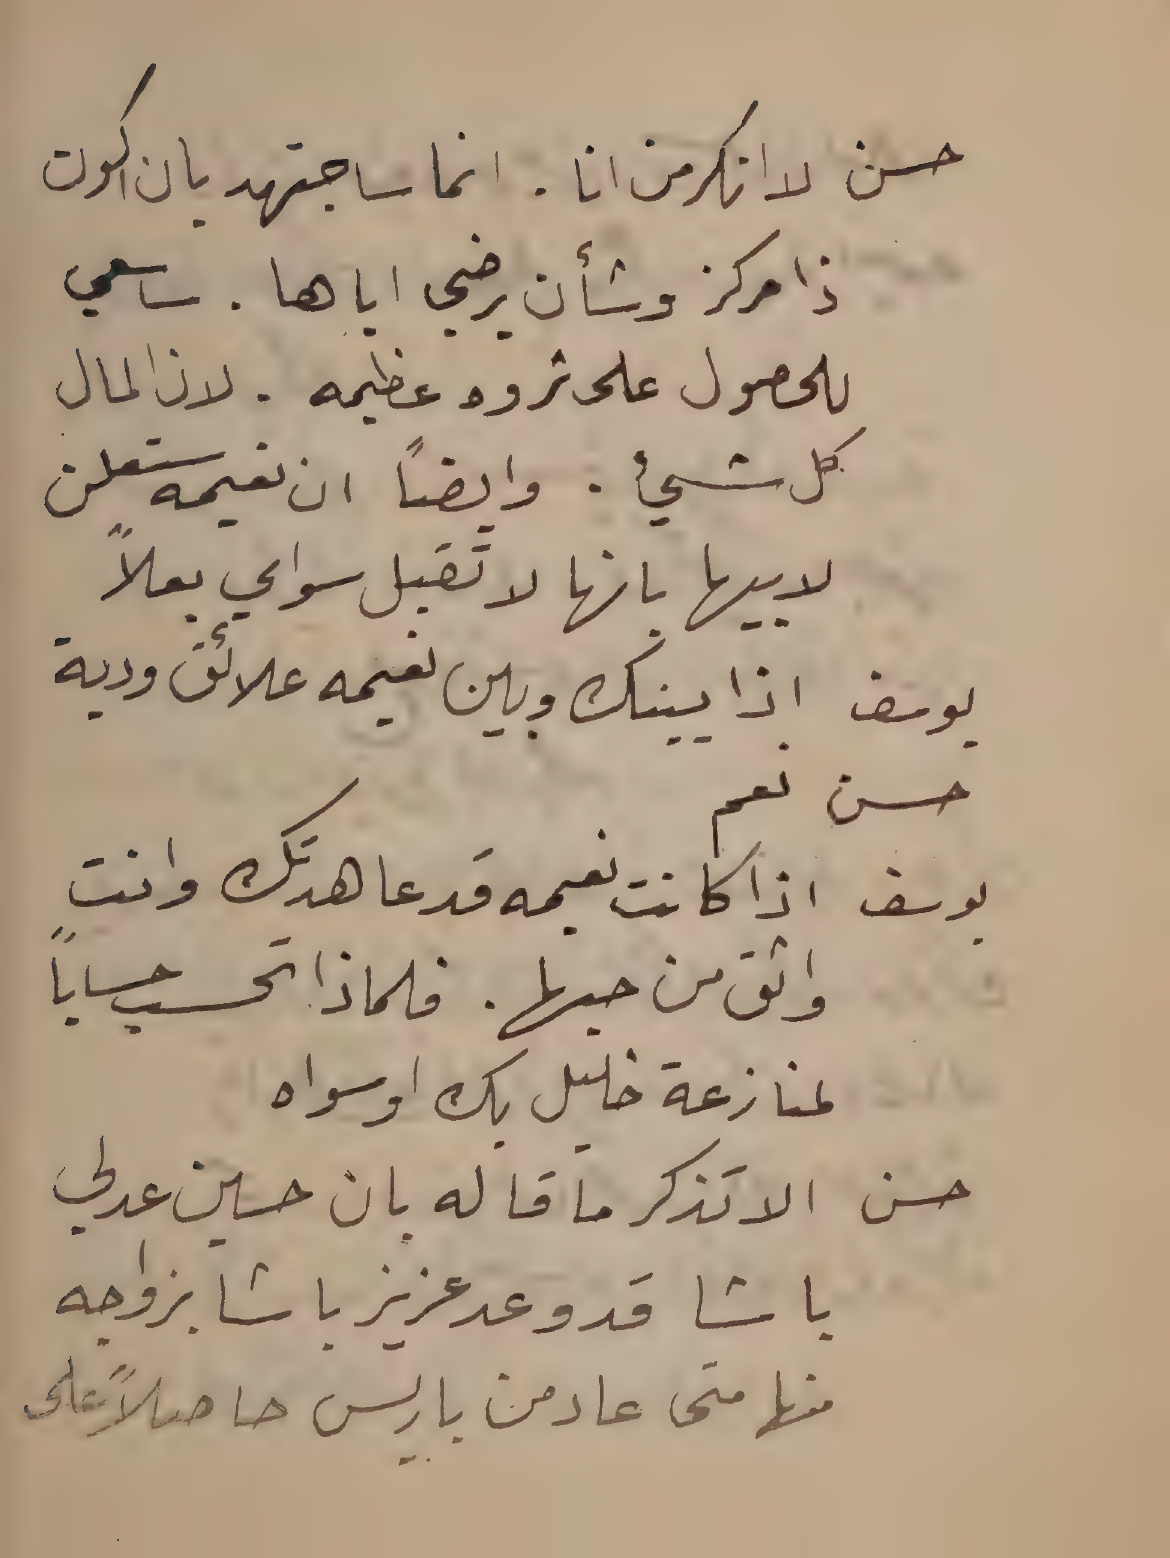 حسن لا انكر من انا . انما ساجتهد بان اكون
ذا مركز وشأن يرضي اباها . ساسعى
للحصول على ثروه عظيمه . لان المال
كل شيئ . وايضاً ان نعيمه ستعلن
لابيها بانها لا تقبل سواي بعلاً
يوسف اذا بينك وبين نعيمه علائق ودية
حسن نعم
يوسف اذا كانت نعيمه قد عاهدتك وانت
واثق من حبها . فلماذا تحسب حساباً
لمنازعة خليل بك او سواه
حسن الا تذكر ما قاله بان حسين عدلي
باشا قد وعد عزيز باشا بزواجه
منها متى عاد من باريس حاصلاً على